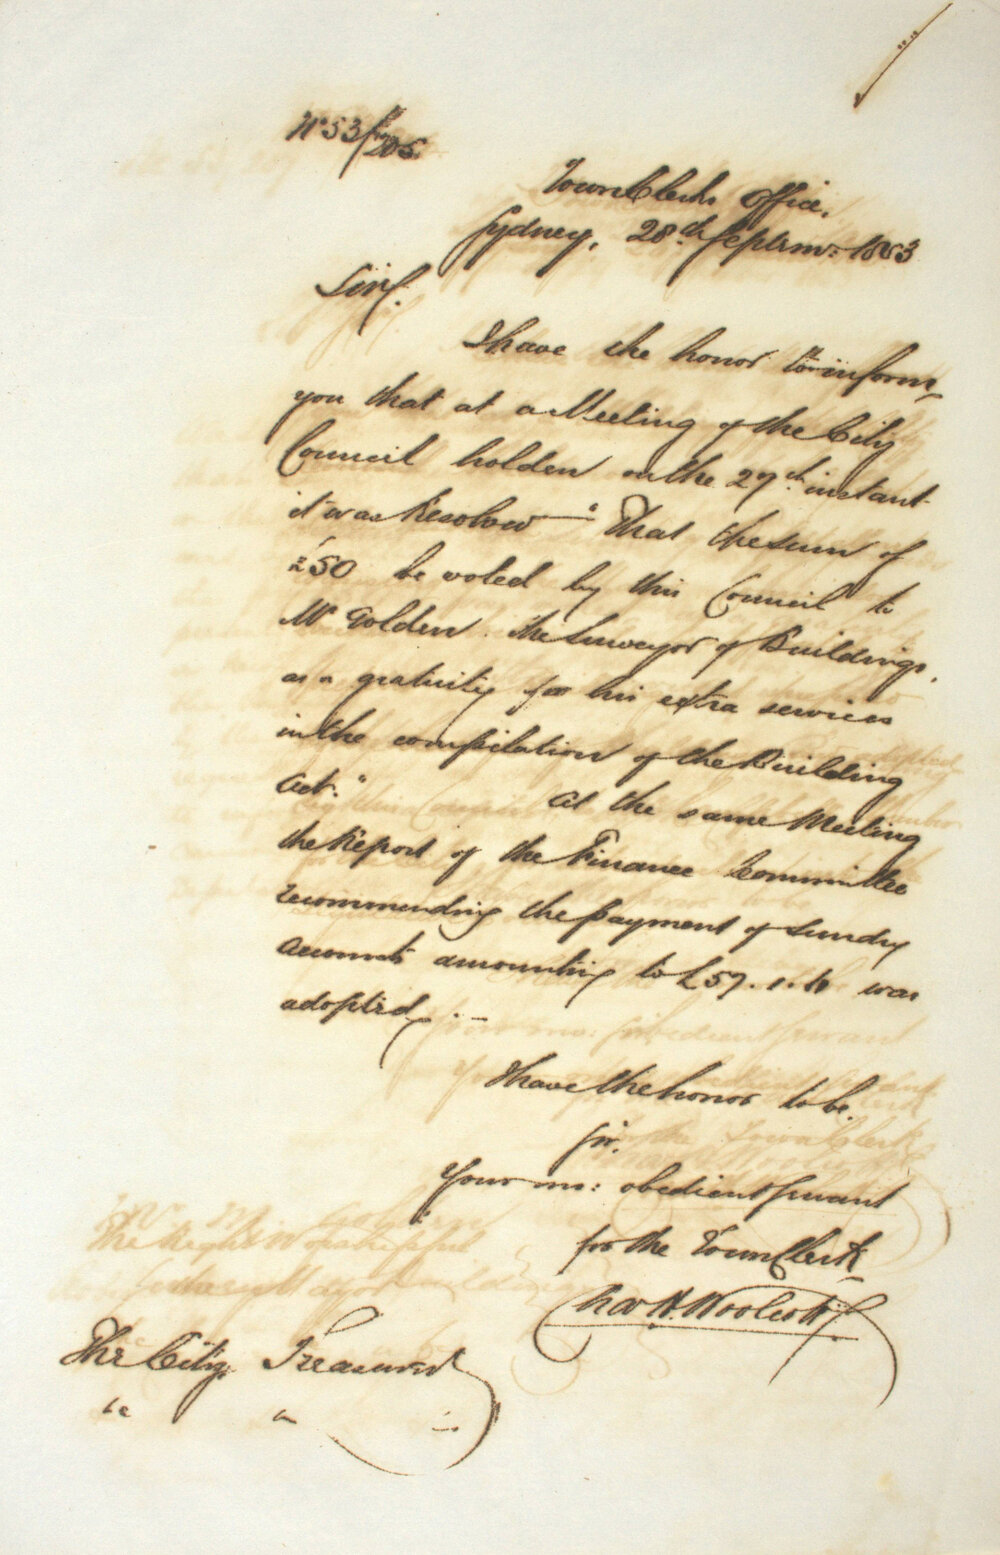 No 53/205.
Town Clerks Office,
Sydney, 28th Septem: 1853
Sir,
I have the honor to inform
you that at a Meeting of the City
Council holden on the 27th instant
it was Resolved — "That the sum of
£50 be voted by this Council to
Mr Golden the Surveyor of Buildings,
as a gratuity for his extra services
in the compilation of the Building
Act."    At the same Meeting
the Report of the Finance Committee
recommending the payment of sundry
accounts amounting to £57.1. was
adopted. —
I have the honor to be
Sir,
Your mo: obedient Servant
for the Town Clerk
Chas H. Woolcott
The City Treasurer